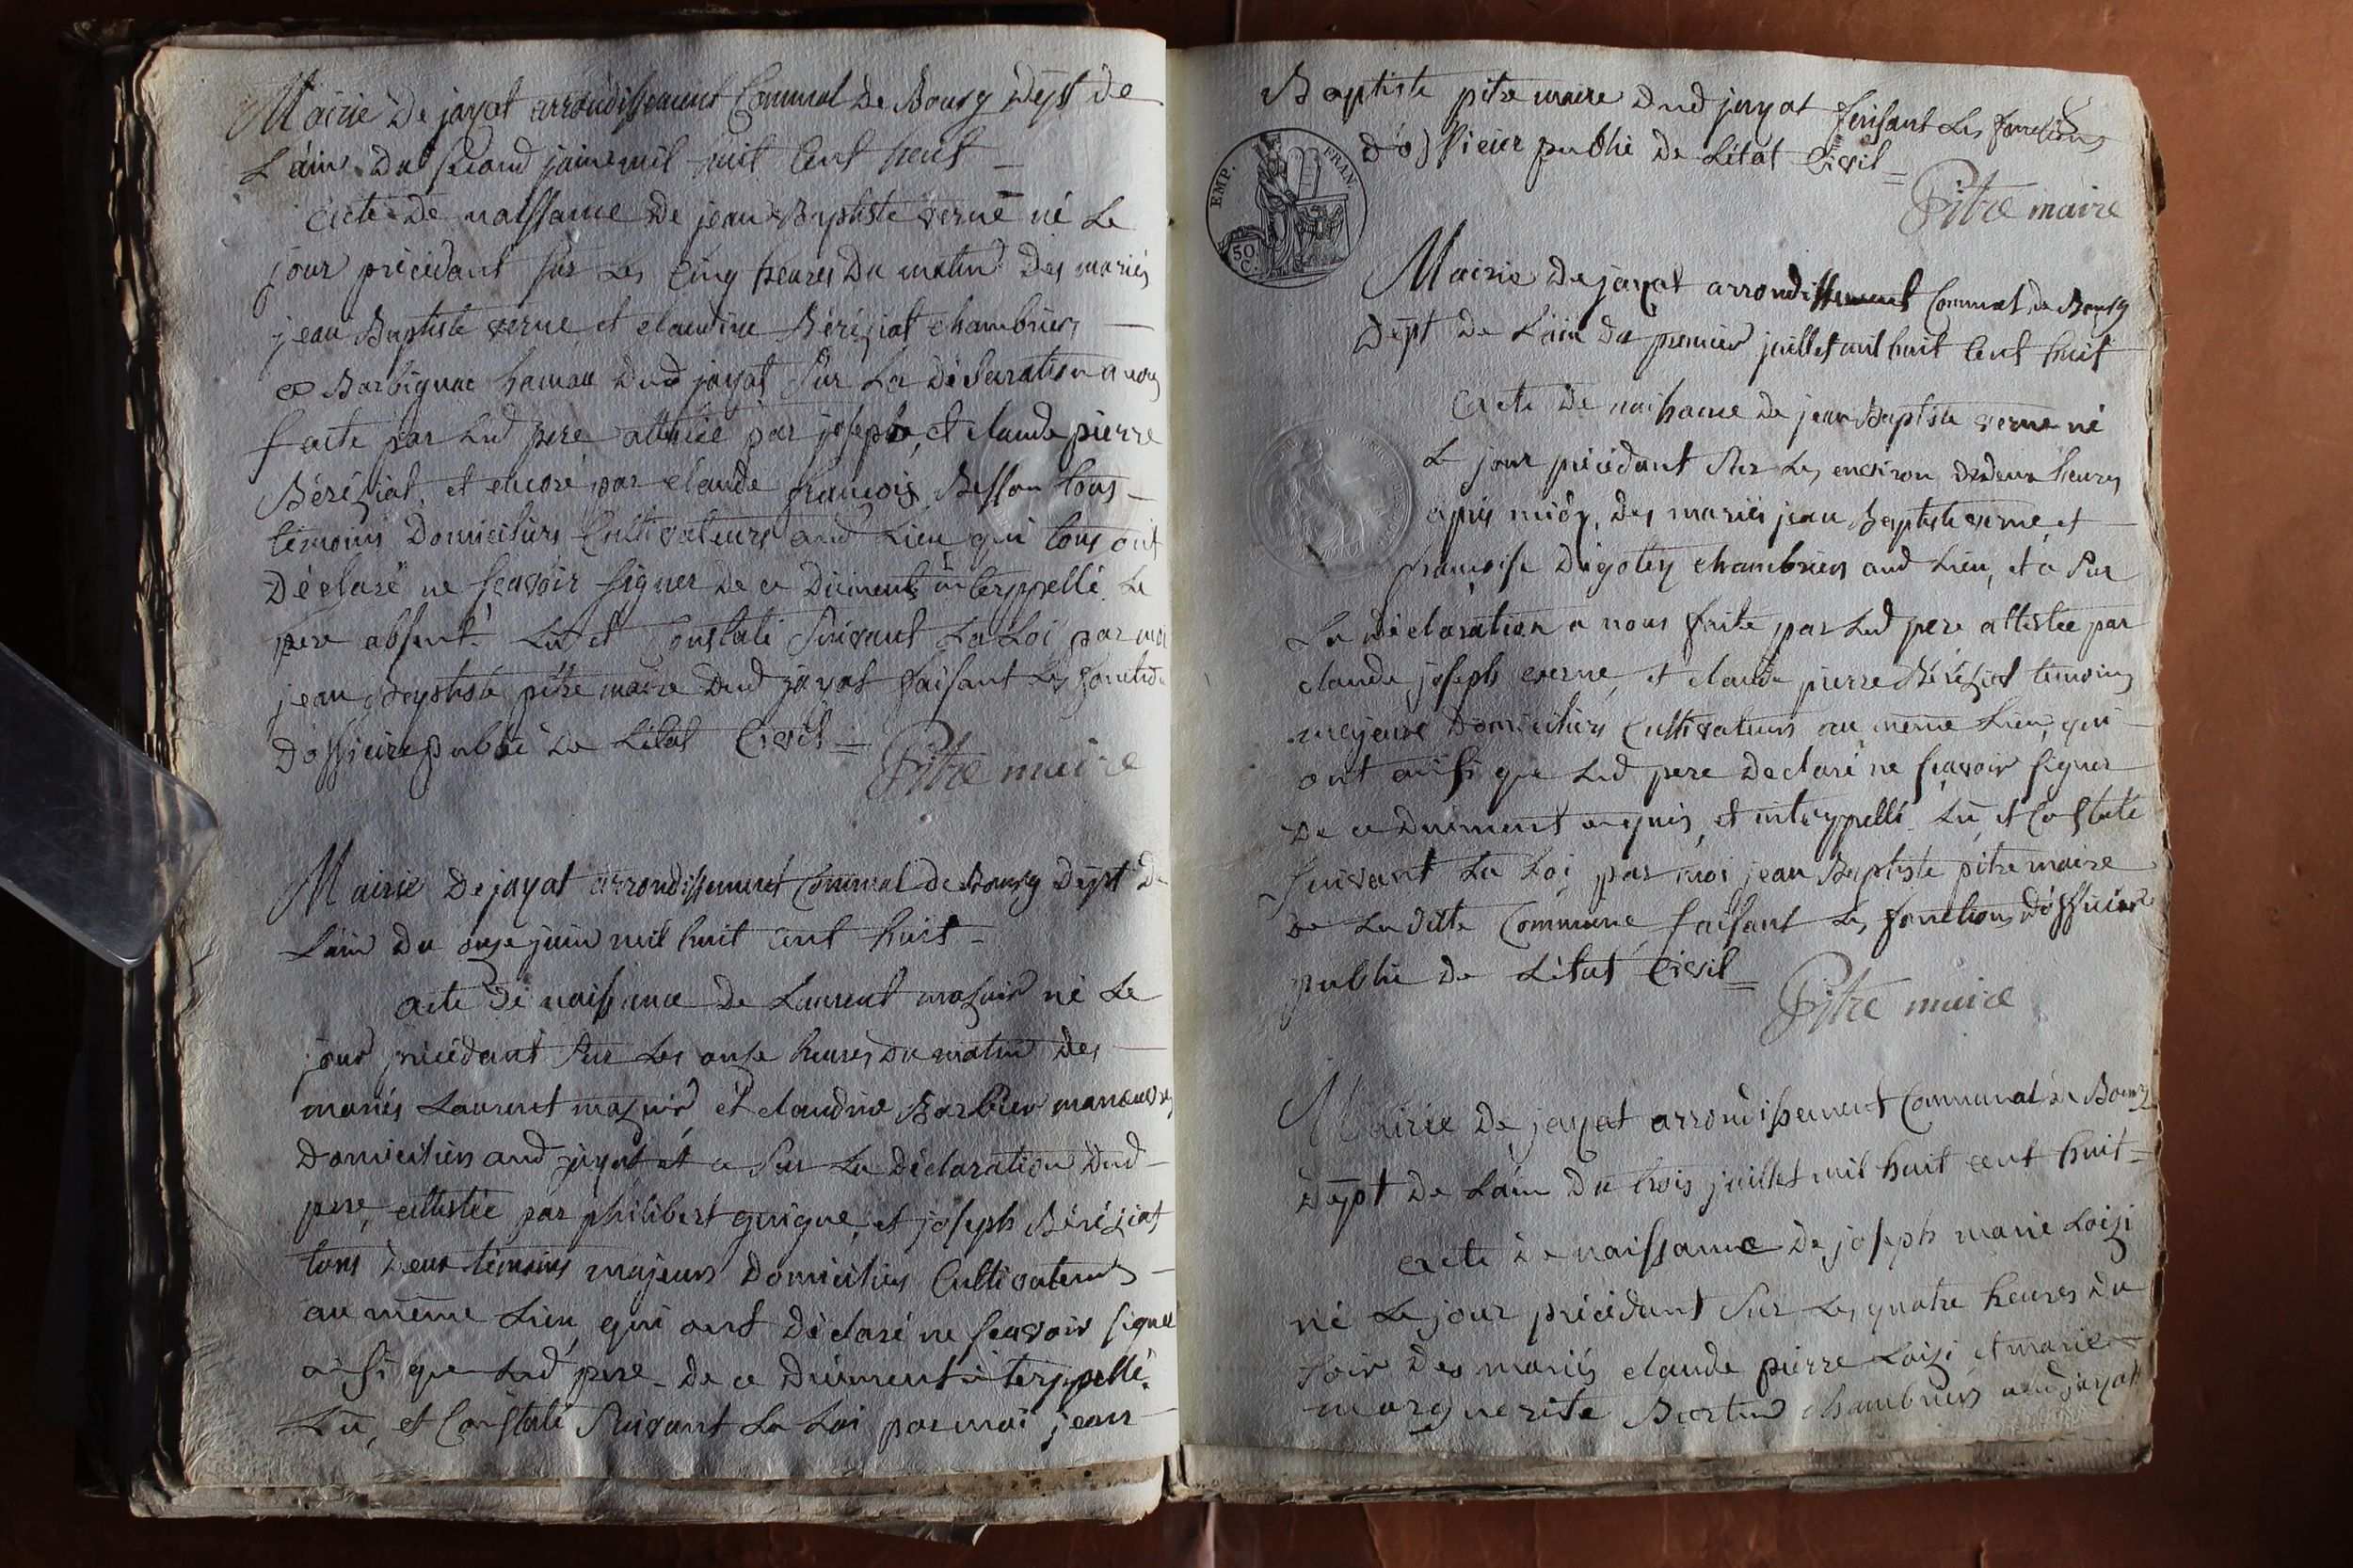 Mairie De jayat arrondissement Communal De Bourg Dept De
L'ain Du second juin mil huit Cent huit
acte De naissance De jean Baptiste verne né Le
jour précédant sur Les Cinq heures Du matin Des mariés
jean Baptiste verne et claudine Béréziat chambriers
Barbignac hamau Dud jayat Sur La Déclaration a nous
faite par Led pere attestée par joseph, et claude pierre
Béréziat, et encore par claude françois Besson tous
temoins Domiciliers Cultivateurs aud Lieu, qui tous ont
Déclaré ne scavoir signer De ce Duement interppellé Le
pere absent. Lu et Constaté suivant La Loi par moi
jean Baptiste pitre maire Dud jayat faisant Les fonctions
D'officier public De L'état Civil =
Pitre maire
Mairie De jayat arrondissement Communal de Bourg Dept De
L'ain Du onze juin mil huit cent huit
acte De naissance De Laurent mazuir né Le
jour précédant Sur Les onze heures Du matin Des
mariés Laurent mazuir, et claudine Barbier manoeuvres
Domiciliers aud jayat et a Sur La Déclaration Dud
pere, attestée par philibert guigue, et joseph Béréziat
tous Deux témoins majeurs Domiciliers Cultivateurs
au même Lieu, qui ont Déclaré ne scavoir signer
ainsi que Led pere De ce Duement interppellé.
Lu, et Constaté suivant La Loi par moi jean
Baptiste pitre maire Dud jayat faisant Les fonctions
D'officier public De L'état Civil =
EMP. FRAN.
50 C.
Pitre maire
Mairie De jayat arrondissement Communal de Bourg
Dept De L'ain Du premier juillet mil huit Cent huit
acte De naissance De jean Baptiste verne né
Le jour précédant Sur Les environ Deux heures
après midy, Des mariés jean Baptiste verne, et
françoise Degoley chambriers aud Lieu, et a Sur
La Déclaration a nous faite par Led pere attestée par
claude joseph verne, et claude pierre Béréziat temoins
majeurs Domiciliers Cultivateurs au même Lieu, qui
ont ainsi que Led pere Declaré ne scavoir signer
De ce Duement requis, et interppellé. Lu, et Constaté
suivant La Loi par moi jean Baptiste pitre maire
De Laditte Commune, faisant Les fonctions D'officier
public De L'état Civil =
Pitre maire
Mairie De jayat arrondissement Communal de Bourg
Dept De L'ain Du trois juillet mil huit cent huit =
acte De naissance De joseph marie Loizi
né Le jour précédant Sur Les quatre heures Du
soir Des mariés claude pierre Loizi et marie
marguerite Bertin chambriers aud jayat